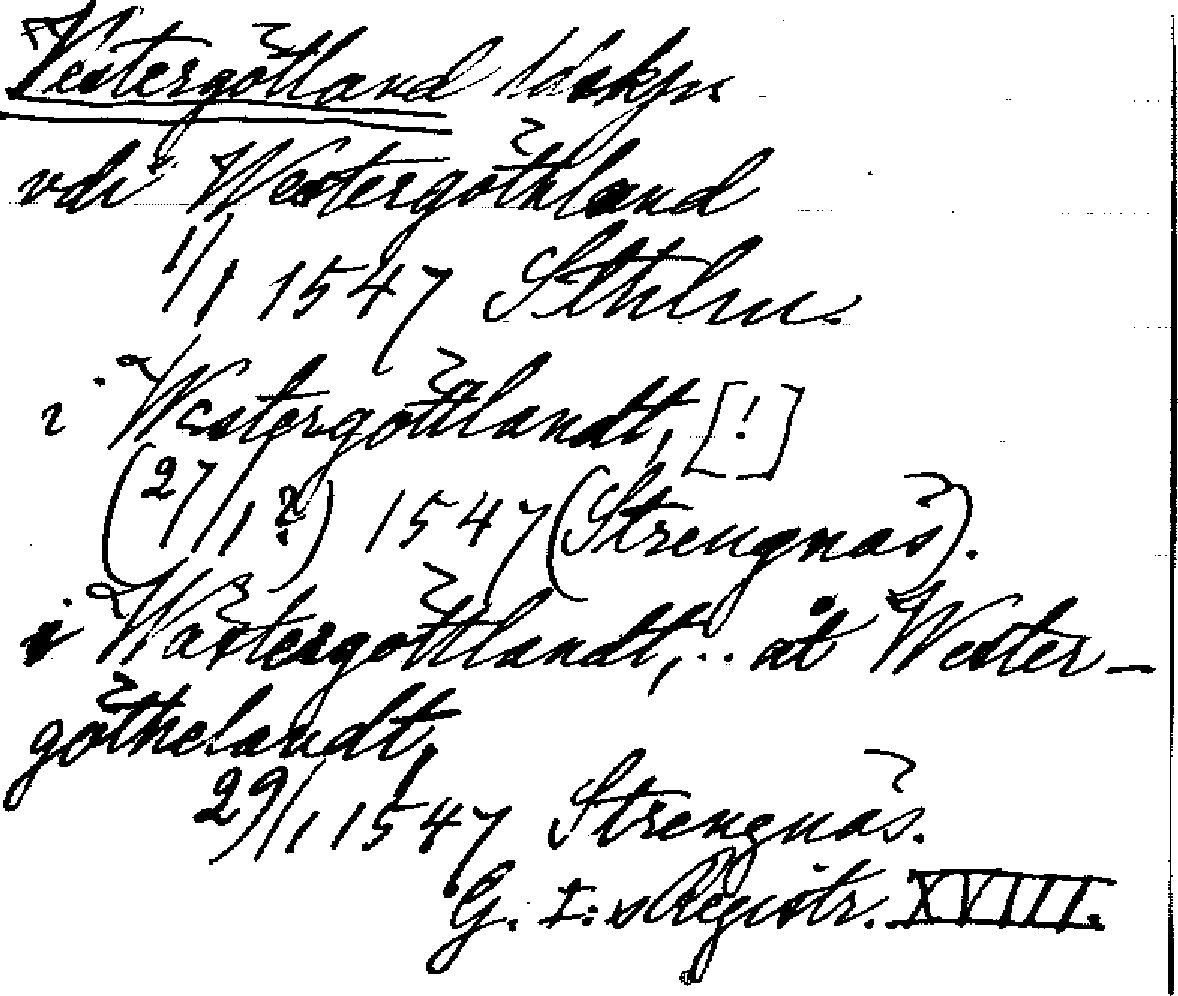 Västergötland ldskp.
vdi Westergöthland
1/1 1547 Sthlm.
i Westergöttlandt, [!]
(27/1 ?) 1547 (Strengnäs).
i Wästergöttlandt, .. åt Wester-
göthelandt,
29/1 1547 Strengnäs.
G. I:s Registr. XVIII.